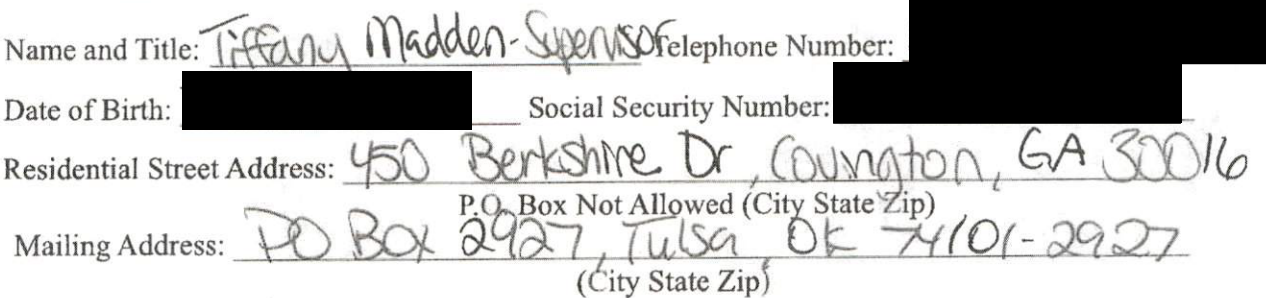 Name and Title: Tiffany Madden-Supervisor Telephone Number:
Date of Birth: Social Security Number:
Residential Street Address: 450 Berkshire Dr, Covington, GA 30016
P.O. Box Not Allowed (City State Zip)
Mailing Address: PO Box 2927, Tulsa OK 74101-2927
(City State Zip)